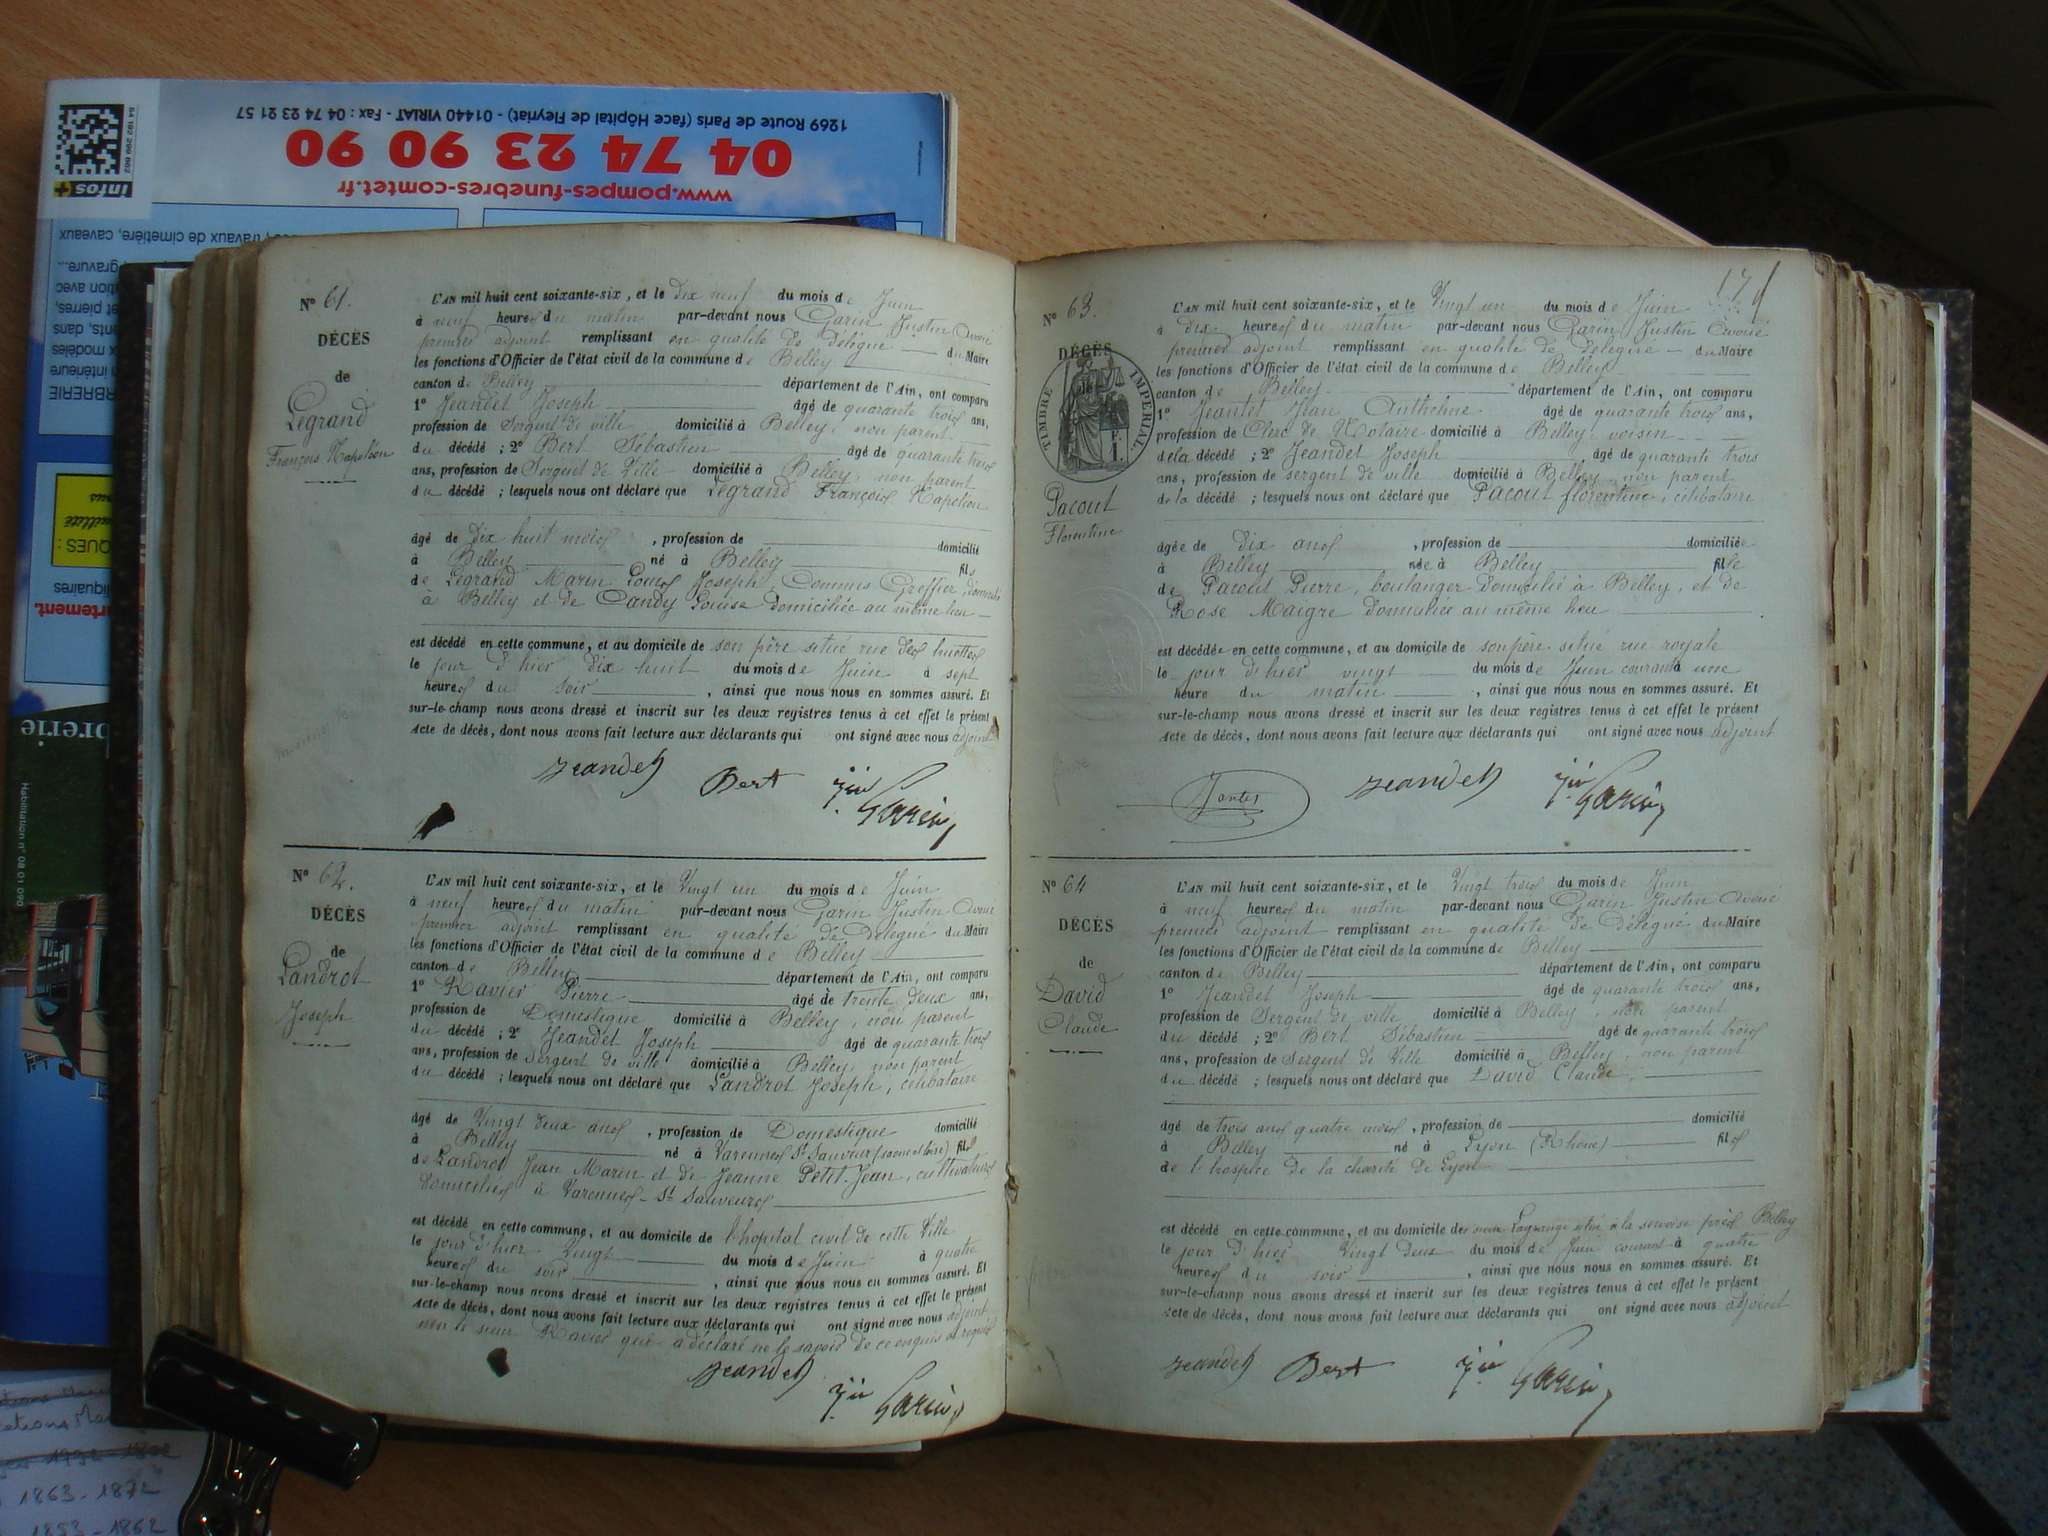 1269 Route de Paris (face Hôpital de Fleyriat) - 01440 VIRIAT - Fax : 04 74 23 21 57
04 74 23 90 90
www.pompes-funebres-comtet.fr
infos+
travaux de cimetière, caveaux
gravure...
N° 61.
DÉCÈS
de
Legrand
François Napoléon
L'AN mil huit cent soixante-six, et le Dix neuf du mois de Juin
à neuf heures du matin par-devant nous Garin Justin Avoué
premier adjoint remplissant en qualité de Délégué du Maire
les fonctions d'Officier de l'état civil de la commune de Belley
canton de Belley département de l'Ain, ont comparu
1° Jeandet Joseph âgé de quarante trois ans,
profession de Sergent de ville domicilié à Belley, non parent
du décédé ; 2° Bert Sébastien âgé de quarante trois
ans, profession de Sergent de Ville domicilié à Belley, non parent
du décédé ; lesquels nous ont déclaré que Legrand François Napoléon
âgé de dix huit mois, profession de domicilié
à Belley né à Belley fils
de Legrand Marin Louis Joseph, Commis Greffier, domicilié
à Belley et de Candy Louise Domiciliée au même lieu
est décédé en cette commune, et au domicile de son père situé rue des huottes
le jour d'hier dix huit du mois de Juin à sept
heures du soir, ainsi que nous nous en sommes assuré. Et
sur-le-champ nous avons dressé et inscrit sur les deux registres tenus à cet effet le présent
Acte de décès, dont nous avons fait lecture aux déclarants qui ont signé avec nous adjoint
Jeandet Bert Jin Garin
N° 62.
DÉCÈS
de
Landrot
Joseph
L'AN mil huit cent soixante-six, et le Vingt un du mois de Juin
à neuf heures du matin par-devant nous Garin Justin Avoué
premier adjoint remplissant en qualité de Délégué du Maire
les fonctions d'Officier de l'état civil de la commune de Belley
canton de Belley département de l'Ain, ont comparu
1° Ravier Pierre âgé de trente deux ans,
profession de Domestique domicilié à Belley, non parent
du décédé ; 2° Jeandet Joseph âgé de quarante trois
ans, profession de Sergent de ville domicilié à Belley, non parent
du décédé ; lesquels nous ont déclaré que Landrot Joseph, célibataire
âgé de Vingt deux ans, profession de Domestique domicilié
à Belley né à Varennes St Sauveur (saone et loire) fils
de Landrot Jean Marin et de Jeanne Petit-Jean, cultivateurs
Domiciliés à Varennes-St Sauveurs
est décédé en cette commune, et au domicile de l'hopital civil de cette Ville
le jour d'hier Vingt du mois de Juin à quatre
heures du soir, ainsi que nous nous en sommes assuré. Et
sur-le-champ nous avons dressé et inscrit sur les deux registres tenus à cet effet le présent
Acte de décès, dont nous avons fait lecture aux déclarants qui ont signé avec nous adjoint
non le sieur Ravier qui a déclaré ne le savoir de ce enquis et requis
Jeandet Jin Garin
N° 63.
DÉCÈS
de
TIMBRE IMPÉRIAL
Pacout
Florentine
L'AN mil huit cent soixante-six, et le Vingt un du mois de Juin
à dix heures du matin par-devant nous Garin Justin Avoué
premier adjoint remplissant en qualité de Délégué du Maire
les fonctions d'Officier de l'état civil de la commune de Belley
canton de Belley département de l'Ain, ont comparu
1° Jeantet Jean Anthelme âgé de quarante trois ans,
profession de Clerc de Notaire domicilié à Belley, voisin
de la décédé ; 2° Jeandet Joseph âgé de quarante trois
ans, profession de sergent de ville domicilié à Belley, non parent
de la décédé ; lesquels nous ont déclaré que Pacout florentine, célibataire
âgée de dix ans, profession de domiciliée
à Belley née à Belley fille
de Pacout Pierre, boulanger Domicilié à Belley, et de
Rose Maigre domiciliée au même lieu
est décédée en cette commune, et au domicile de son père situé rue royale
le jour d'hier vingt du mois de Juin courant à une
heure du matin, ainsi que nous nous en sommes assuré. Et
sur-le-champ nous avons dressé et inscrit sur les deux registres tenus à cet effet le présent
Acte de décès, dont nous avons fait lecture aux déclarants qui ont signé avec nous adjoint
Jeandet Jin Garin
N° 64
DÉCÈS
de
David
Claude
L'AN mil huit cent soixante-six, et le Vingt trois du mois de Juin
à neuf heures du matin par-devant nous Garin Justin Avoué
premier adjoint remplissant en qualité de Délégué du Maire
les fonctions d'Officier de l'état civil de la commune de Belley
canton de Belley département de l'Ain, ont comparu
1° Jeandet Joseph âgé de quarante trois ans,
profession de Sergent de ville domicilié à Belley, non parent
du décédé ; 2° Bert Sébastien âgé de quarante trois
ans, profession de Sergent de Ville domicilié à Belley, non parent
du décédé ; lesquels nous ont déclaré que David Claude,
âgé de trois ans quatre mois, profession de domicilié
à Belley né à Lyon (Rhone) fils
de l'hospice de la charité de Lyon
est décédé en cette commune, et au domicile de sieur Lagrange situé à la près Belley
le jour d'hier Vingt deux du mois de Juin courant à quatre
heures du soir, ainsi que nous nous en sommes assuré. Et
sur-le-champ nous avons dressé et inscrit sur les deux registres tenus à cet effet le présent
Acte de décès, dont nous avons fait lecture aux déclarants qui ont signé avec nous adjoint
Jeandet Bert Jin Garin
1863-1872
1853-1862